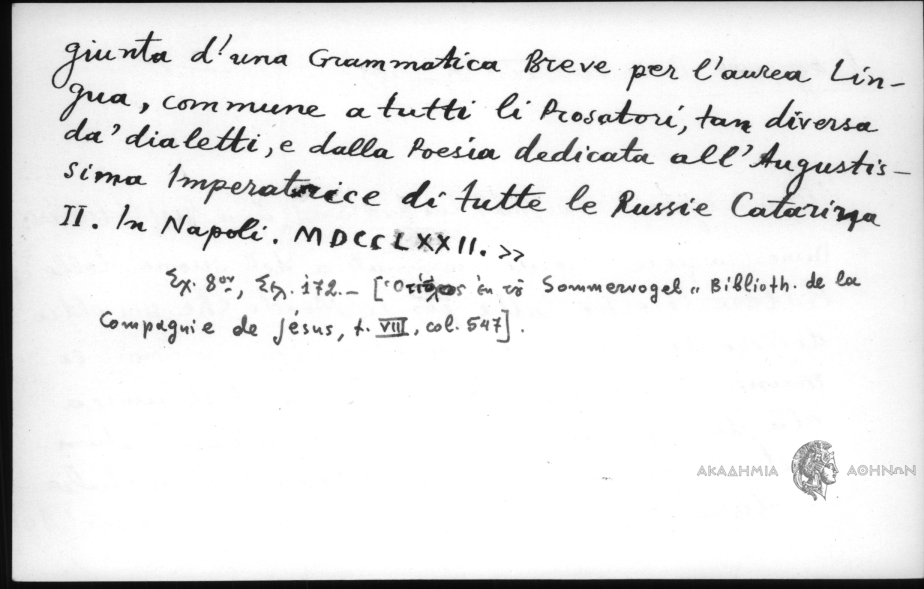 giunta d'una Grammatica Breve per l'aurea Lin-
gua, commune a tutti li Prosatori, tan diversa
da' dialetti, e dalla Poesia dedicata all'Augustis-
sima Imperatrice di tutte le Russie Catarina
II. In Napoli. MDCCLXXII. >>
Σχ. 8ον, Σελ. 172. — [Ὁ ἐκ τοῦ Sommervogel « Biblioth. de la
Compagnie de Jésus, t. VIII, col. 547].
ΑΚΑΔΗΜΙΑ ΑΘΗΝΩΝ